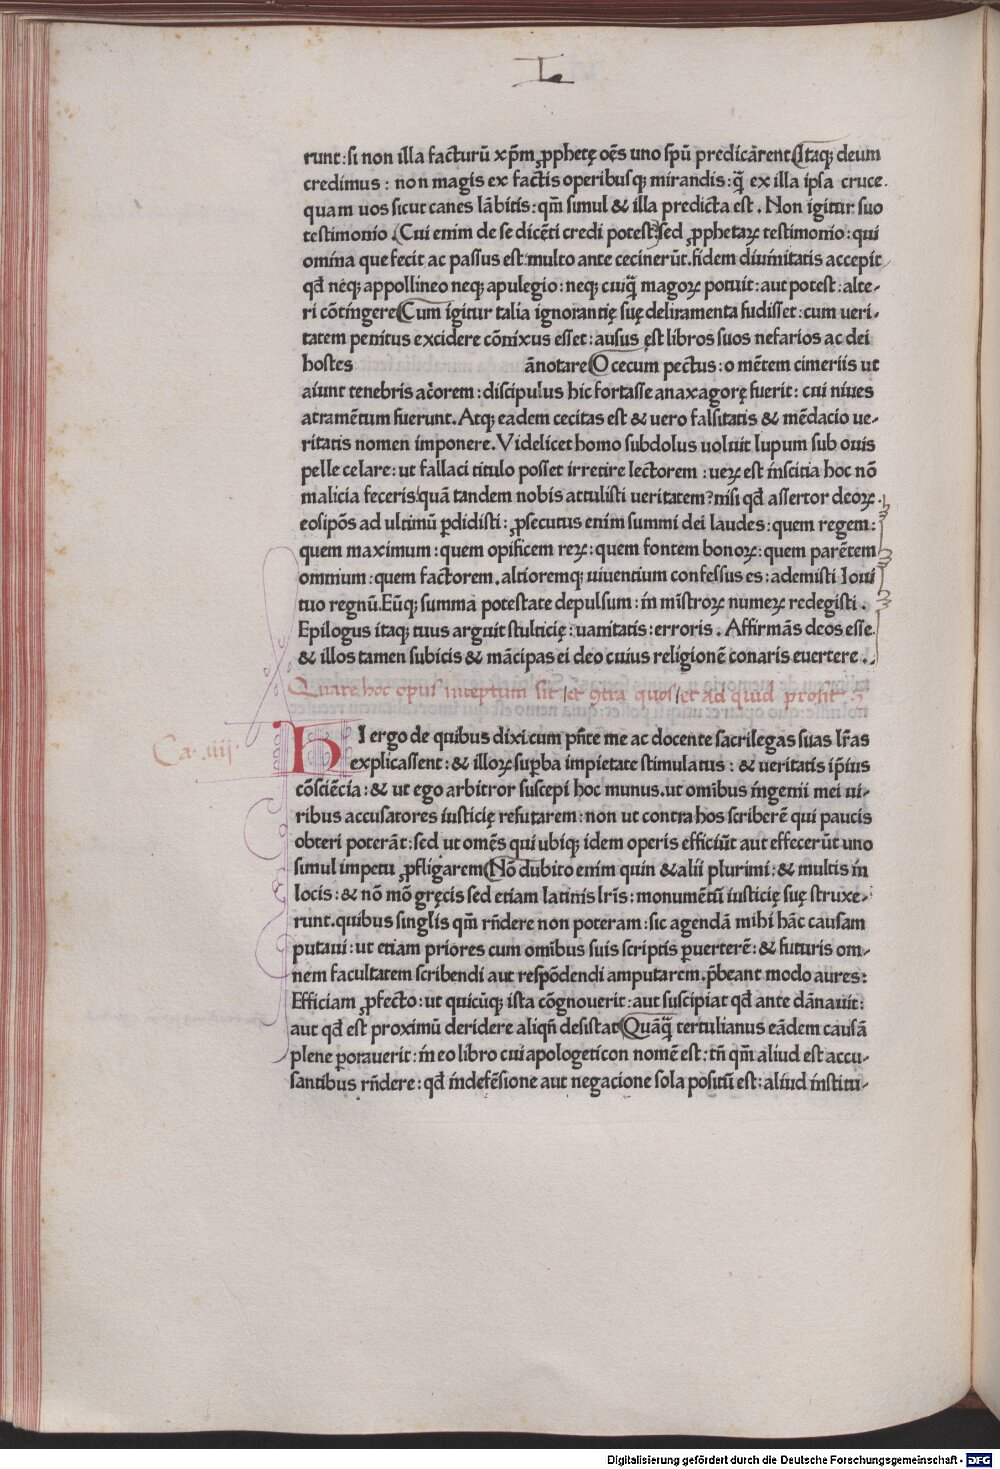 L
runt: si non illa facturū xp̄m ꝓphetę oēs uno spū predicārent Itaqꝫ deum
credimus: non magis ex factis operibusqꝫ mirandis: q̄ ex illa ipsa cruce.
quam uos sicut canes lābitis: qm̄ simul & illa predicta est. Non igitur suo
testimonio. Cui enim de se dicēti credi potest: sed ꝓphetaꝝ testimonio: qui
omīna que fecit ac passus est multo ante cecinerūt. fidem diuinitatis accepit
qd̄ neqꝫ appollineo neqꝫ apulegio: neqꝫ cuiq̄ magoꝝ potuit: aut potest: alte-
ri cōtingere Cum igitur talia ignorantię suę deliramenta fudisset: cum ueri-
tatem penitus excidere cōnixus esset: ausus ęst libros suos nefarios ac dei
hostes ānotare O cecum pectus: o mētem cimeriis ut
aiunt tenebris ac̄orem: discipulus hic fortasse anaxagorę fuerit: cui niues
atramētum fuerunt. Atqꝫ eadem cecitas est & uero falsitatis & mēdacio ue-
ritatis nomen imponere. Videlicet homo subdolus uoluit lupum sub ouis
pelle celare: ut fallaci titulo posset irretire lectorem: ueꝝ est īnscitia hoc nō
malicia feceris quā tandem nobis attulisti ueritatem? nisi qd̄ assertor deoꝝ.
eosipōs ad ultimū ꝑdidisti: ꝓsecutus enim summi dei laudes: quem regem:
quem maximum: quem opificem reꝝ: quem fontem bonoꝝ: quem parētem
omnium: quem factorem. altioremqꝫ uiuentium confessus es: ademisti Ioui
tuo regnū. Eūqꝫ summa potestate depulsum: īn mīstroꝝ numeꝝ redegisti.
Epilogus itaqꝫ tuus arguit stulticię: uanitatis: erroris. Affirmās deos esse.
& illos tamen subicis & mācipas ei deo cuius religionē conaris euertere..
Quare hoc opus inceptum sit et ꝯtra quos et ad quid prosit
Ca. iiij.
HI ergo de quibus dixi cum pn̄te me ac docente sacrilegas suas lr̄as
explicassent: & illoꝝ suꝑba impietate stimulatus: & ueritatis ip̄ius
cōsciēcia: & ut ego arbitror suscepi hoc munus. ut omībus īngenii mei ui-
ribus accusatores iusticię refutarem: non ut contra hos scriberē qui paucis
obteri poterāt: sed ut omēs qui ubiqꝫ idem operis efficiūt aut effecerūt uno
simul impetu ꝓfligarem Nō dubito enim quin & alii plurimi: & multis īn
locis: & nō mō gręcis sed etiam latinis lr̄is: monumētū iusticię suę struxe-
runt. quibus singlis qm̄ rn̄dere non poteram: sic agendā mihi hāc causam
putaui: ut etiam priores cum omībus suis scriptis ꝑuerterē: & futuris om-
nem facultatem scribendi aut respōdendi amputarem. p̄beant modo aures:
Efficiam ꝓfecto: ut quicūqꝫ ista cōgnouerit: aut suscipiat qd̄ ante dānauit:
aut qd̄ est proximū deridere aliqn̄ desistat Quāq̄ tertulianus eādem causā
plene ꝑorauerit: īn eo libro cui apologeticon nomē est: tn̄ qm̄ aliud est accu-
santibus rn̄dere: qd̄ īn defēsione aut negacione sola positū est: aliud īnstitu-
Digitalisierung gefördert durch die Deutsche Forschungsgemeinschaft - DFG